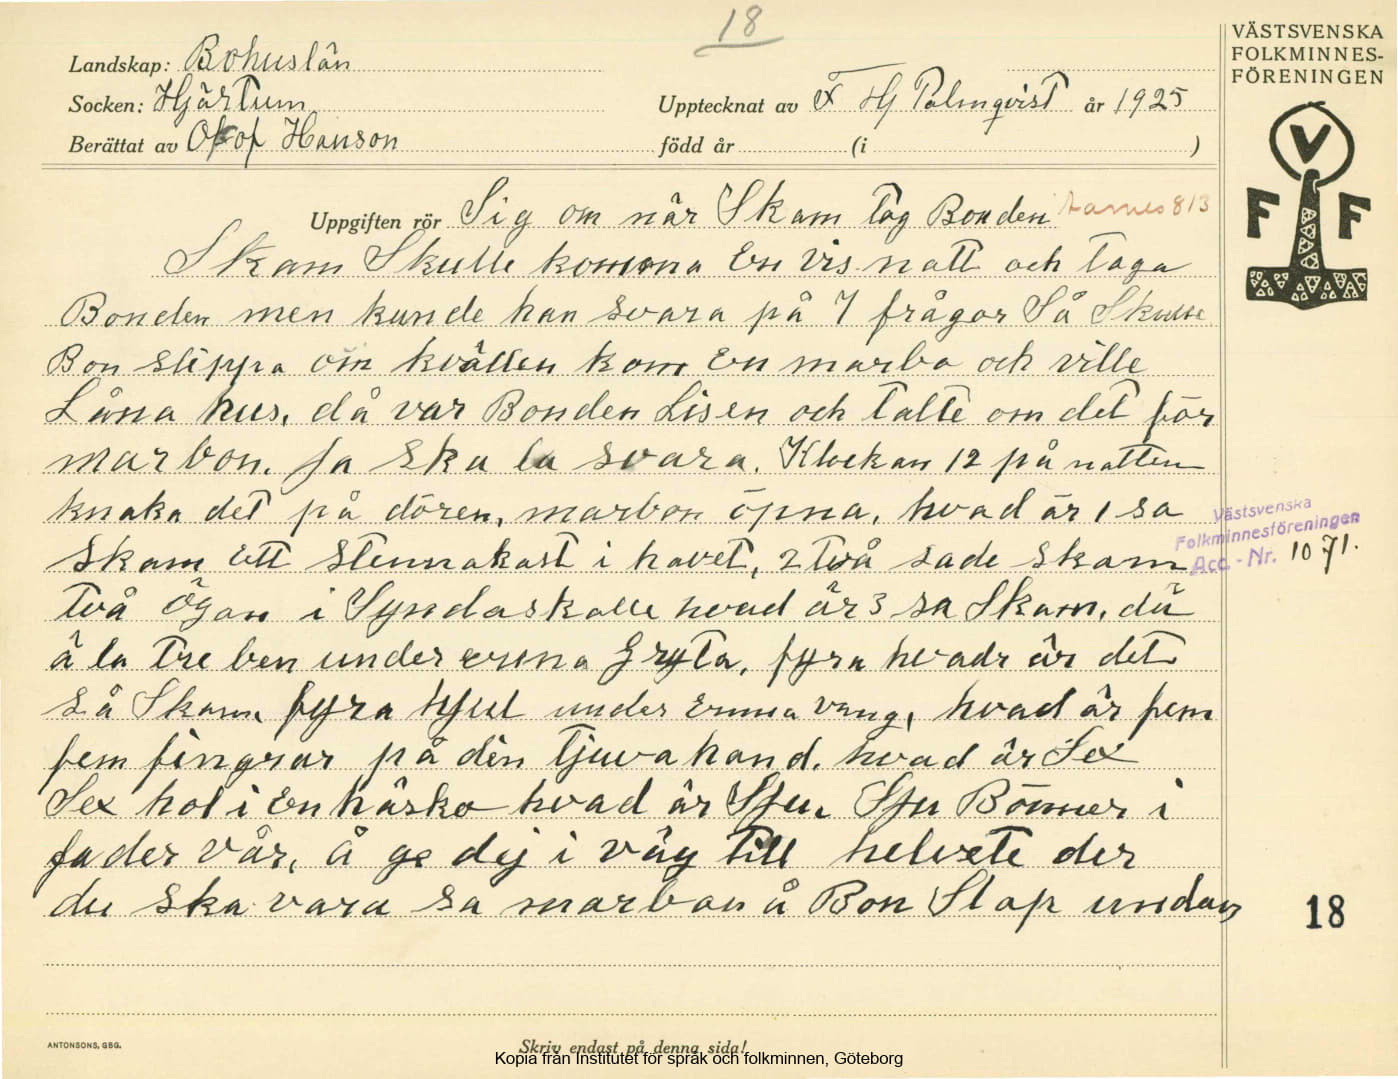 18
VÄSTSVENSKA
FOLKMINNES-
FÖRENINGEN
Landskap: Bohuslän
Socken: Hjärtum
Upptecknat av F Hj Palmqvist år 1925
Berättat av Olof Hanson
född år (i )
V
F F
Uppgiften rör Sig om när Skam tog Bonden
813
Skam Skulle komma En vis natt och taga
Bonden men kunde han svara på 7 frågor Så Skulle
Bon slippa om kvällen kom En marbo och ville
Låna hus, då var Bonden Lisen och talte om det för
marbon. Ja ska la svara. Klockan 12 på natten
knaka det på dören, marbon öpna, hvad är 1 sa
Skam Ett Stennakast i havet, 2 två sade Skam
två ögan i Syndaskalle hvad är 3 sa Skam, dä
ä la tre ben under Gryta, fyra hvadr är det
Så Skam, fyra hjul under Emma vang, hvad är fem
fem fingrar på din tjuvahand. hvad är Sex
Sex hol i En häsko hvad är Sju, Sju Bönner i
fader vår, å ge dej i väg till helvete der
du ska vara sa marbon å Bon Slap undan
Västsvenska
Folkminnesföreningen
Acc.-Nr. 1071.
18
ANTONSONS, GBG.
Skriv endast på denna sida!
Kopia från Institutet för språk och folkminnen, Göteborg